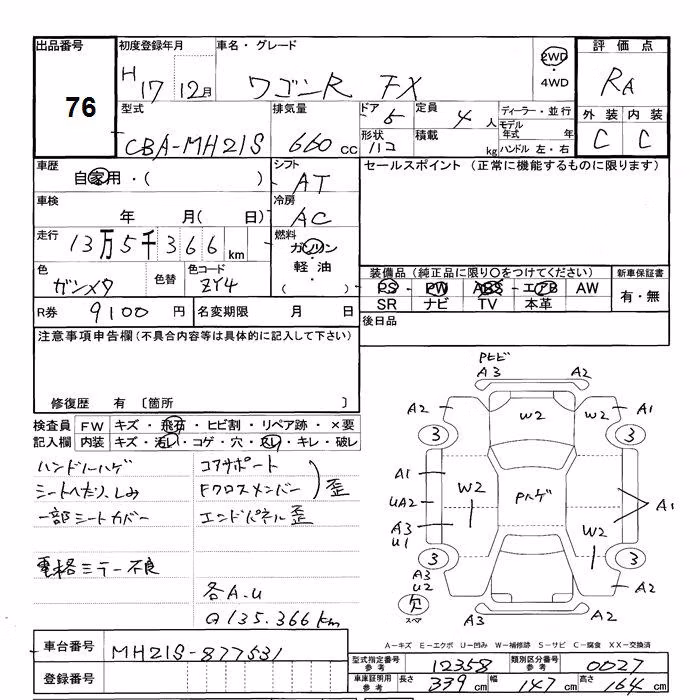 出品番号
76
初度登録年月
H 17 12月
車名・グレード
ワゴンR FX
2WD
・
4WD
評価点
RA
外装 内装
C C
型式
CBA-MH21S
排気量
660 cc
ドア 5
定員 4 人
形状 ハコ
積載 kg
ディーラー・並行
モデル
年式 年
ハンドル 左・右
車歴
自家用・( )
シフト
AT
車検
年 月( 日)
冷房
AC
走行
13万5千366 km
燃料
ガソリン
軽油
( )
色
ガンメタ
色替
色コード
ZY4
R券 9100 円
名変期限 月 日
セールスポイント (正常に機能するものに限ります)
装備品 (純正品に限り○をつけてください)
PS・PW・ABS・エアB AW
SR ナビ TV 本革
新車保証書
有・無
後日品
注意事項申告欄(不具合内容等は具体的に記入して下さい)
修復歴 有 〔箇所 〕
検査員
記入欄
FW キズ・飛石・ヒビ割・リペア跡・×要
内装 キズ・汚レ・コゲ・穴・スレ・キレ・破レ
ハンドルハゲ
シートヘたり、しみ
一部シートカバー
電格ミラー不良
コアサポート
Fクロスメンバー
歪
エンドパネル歪
各A.U
Q135.366km
Pヒビ
A3 A2
A2 W2 W2 A1
3 3
A1
UA2
A3
U1
W2 Pハゲ W2 A1
3 3
A3
U2
A2
欠
スペア
A2 A3 A2
A-キズ E-エクボ U-凹み W-補修跡 S-サビ C-腐食 XX-交換済
車台番号
MH21S-877531
登録番号
型式指定番号
参考
12358
類別区分番号
参考
0027
車庫証明用
参考
長さ 339 cm
幅 147 cm
高さ 164 cm